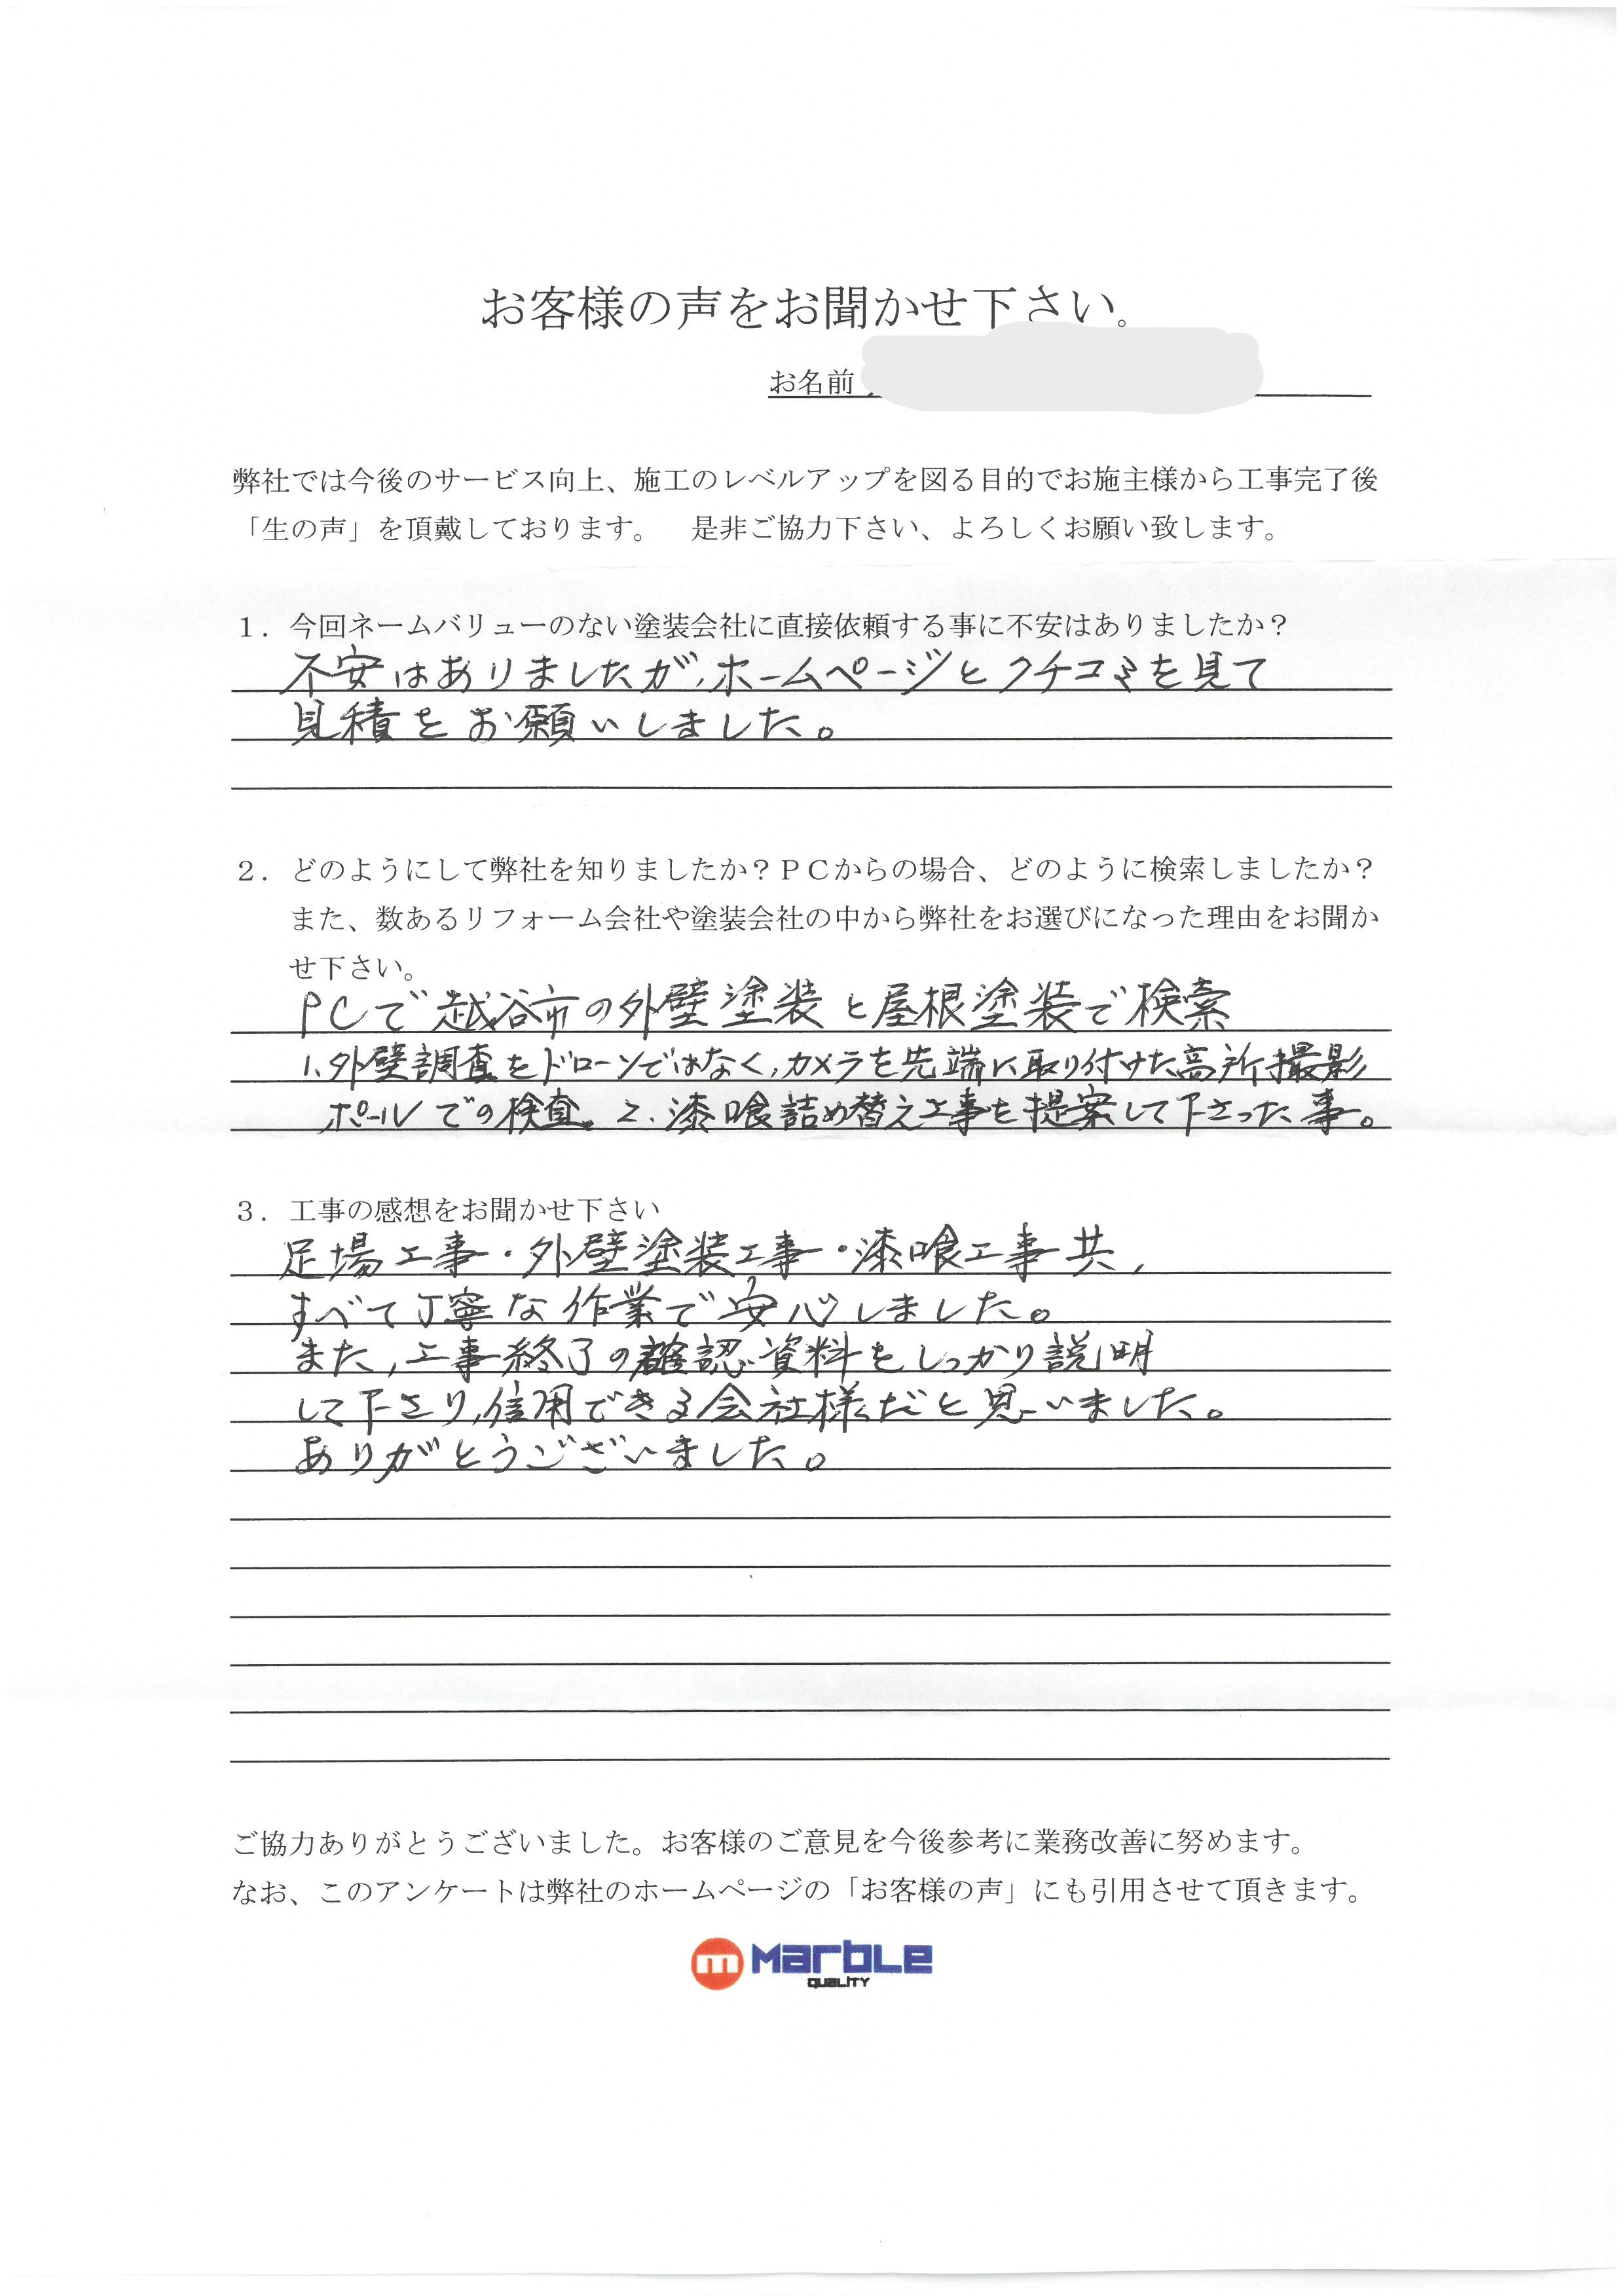 お客様の声をお聞かせ下さい。
お名前
弊社では今後のサービス向上、施工のレベルアップを図る目的でお施主様から工事完了後
「生の声」を頂戴しております。　是非ご協力下さい、よろしくお願い致します。
１．今回ネームバリューのない塗装会社に直接依頼する事に不安はありましたか？
不安はありましたが、ホームページとクチコミを見て
見積をお願いしました。
２．どのようにして弊社を知りましたか？ＰＣからの場合、どのように検索しましたか？
また、数あるリフォーム会社や塗装会社の中から弊社をお選びになった理由をお聞か
せ下さい。
PCで越谷市の外壁塗装と屋根塗装で検索
1、外壁調査をドローンではなく、カメラを先端に取り付けた高所撮影
ポールでの検査。2、漆喰詰め替え工事を提案して下さった事。
３．工事の感想をお聞かせ下さい
足場工事・外壁塗装工事・漆喰工事共、
すべて丁寧な作業で安心しました。
また、工事終了の確認資料をしっかり説明
して下さり、信用できる会社様だと思いました。
ありがとうございました。
ご協力ありがとうございました。お客様のご意見を今後参考に業務改善に努めます。
なお、このアンケートは弊社のホームページの「お客様の声」にも引用させて頂きます。
m Marble
QUALITY